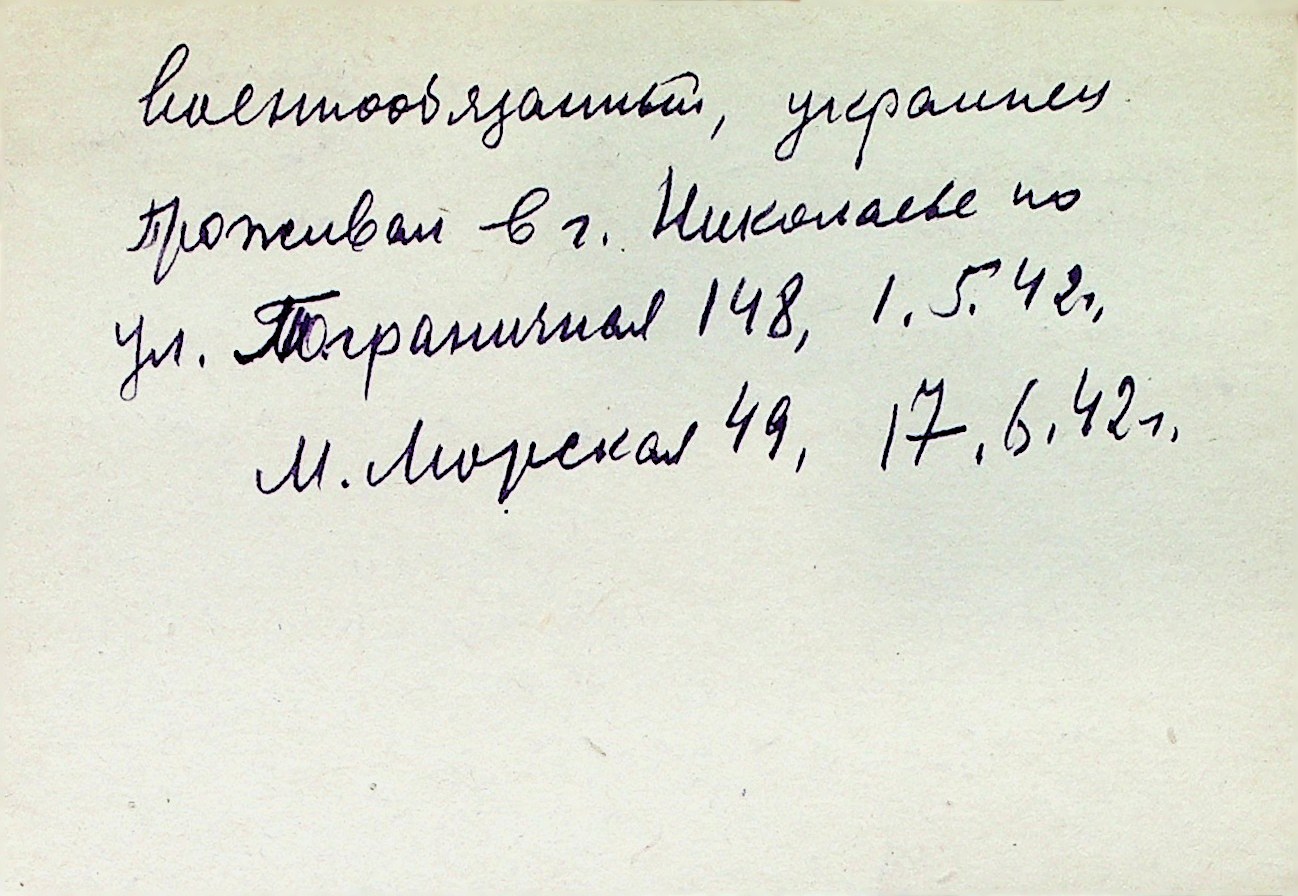 военнообязанный, украинец
проживал в г. Николаеве по
ул. Пограничная 148, 1.5.42г.,
М. Морская 49, 17.6.42г.